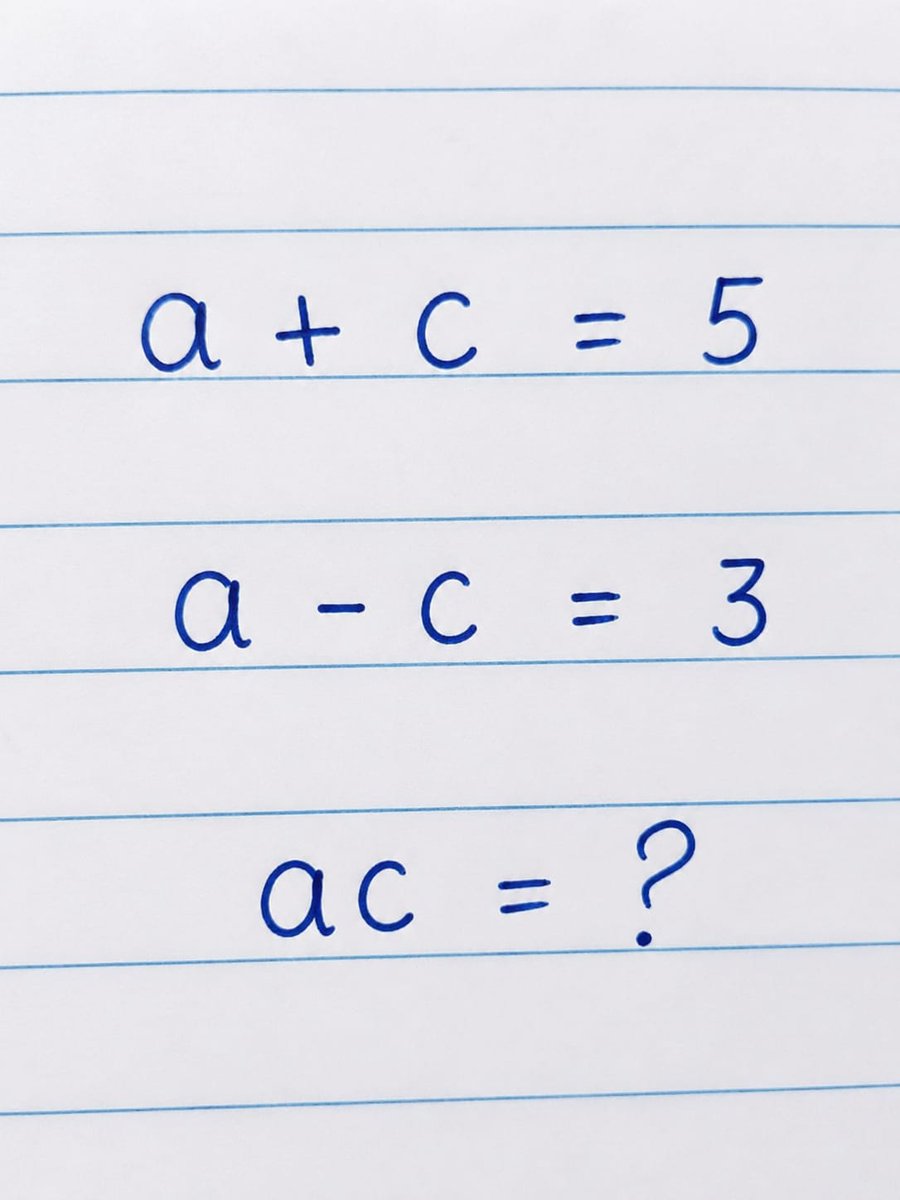 a + c = 5
a - c = 3
ac = ?